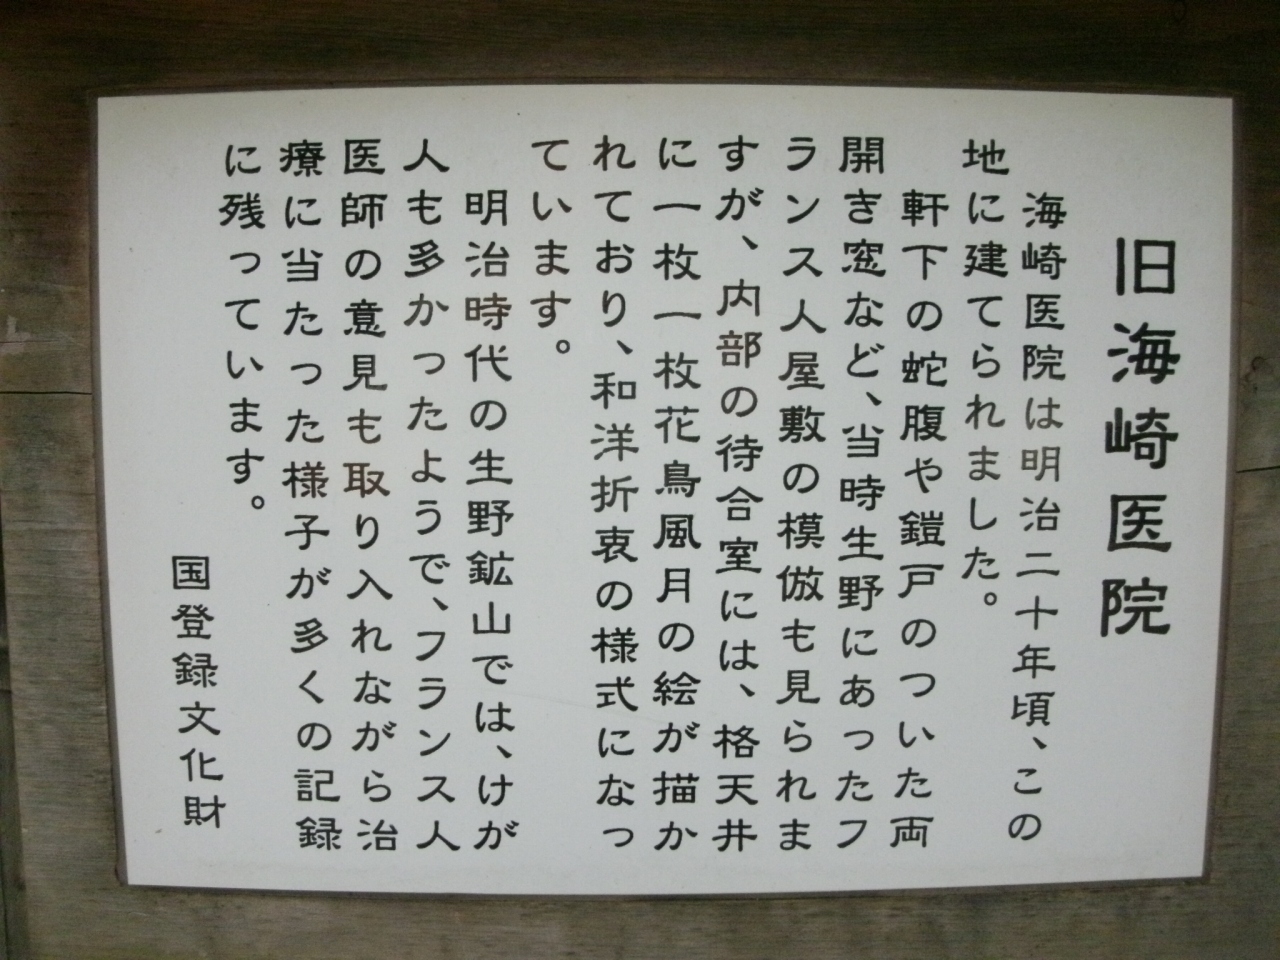 旧海崎医院
海崎医院は明治二十年頃、この
地に建てられました。
軒下の蛇腹や鎧戸のついた両
開き窓など、当時生野にあったフ
ランス人屋敷の模倣も見られま
すが、内部の待合室には、格天井
に一枚一枚花鳥風月の絵が描か
れており、和洋折衷の様式になっ
ています。
明治時代の生野鉱山では、けが
人も多かったようで、フランス人
医師の意見も取り入れながら治
療に当たった様子が多くの記録
に残っています。
国登録文化財